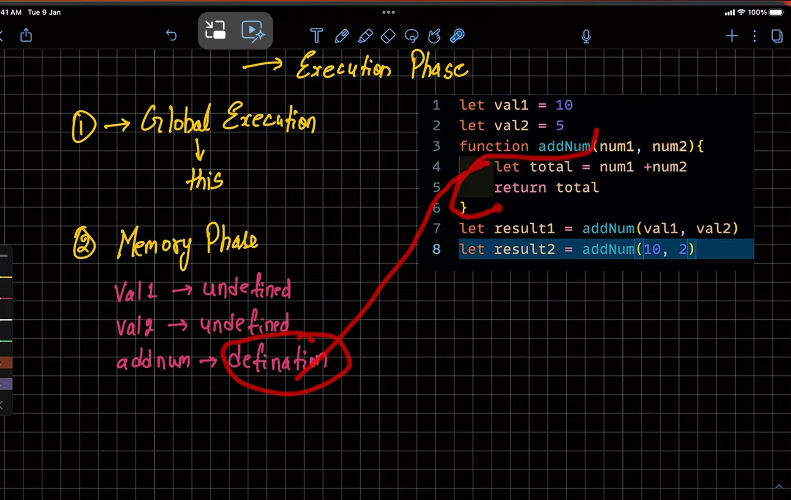 41 AM Tue 9 Jan
100%
→ Execution Phase
① → Global Execution
↓
this
② Memory Phase
Val1 → undefined
val2 → undefined
addnum → defination
1 let val1 = 10
2 let val2 = 5
3 function addNum(num1, num2){
4 let total = num1 +num2
5 return total
6 }
7 let result1 = addNum(val1, val2)
8 let result2 = addNum(10, 2)